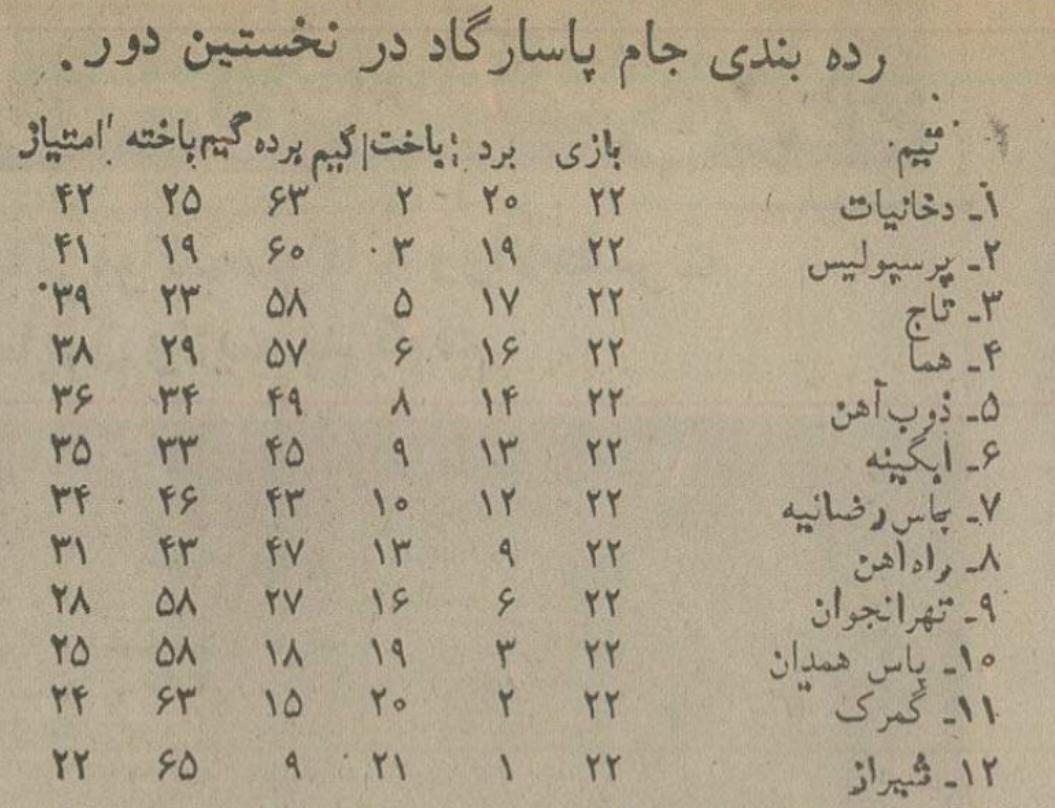 رده بندی جام پاسارگاد در نخستین دور.
تیم بازی برد باخت گیم برده گیم باخته امتیاز
۱ـ دخانیات ۲۲ ۲۰ ۲ ۶۳ ۲۵ ۴۲
۲ـ پرسپولیس ۲۲ ۱۹ ۳ ۶۰ ۱۹ ۴۱
۳ـ تاج ۲۲ ۱۷ ۵ ۵۸ ۲۳ ۳۹
۴ـ هما ۲۲ ۱۶ ۶ ۵۷ ۲۹ ۳۸
۵ـ ذوب‌آهن ۲۲ ۱۴ ۸ ۴۹ ۳۴ ۳۶
۶ـ آبگینه ۲۲ ۱۳ ۹ ۴۵ ۳۳ ۳۵
۷ـ پاس رضائیه ۲۲ ۱۲ ۱۰ ۴۳ ۴۶ ۳۴
۸ـ راه‌آهن ۲۲ ۹ ۱۳ ۴۷ ۴۳ ۳۱
۹ـ تهرانجوان ۲۲ ۶ ۱۶ ۲۷ ۵۸ ۲۸
۱۰ـ پاس همدان ۲۲ ۳ ۱۹ ۱۸ ۵۸ ۲۵
۱۱ـ گمرک ۲۲ ۲ ۲۰ ۱۵ ۶۳ ۲۴
۱۲ـ شیراز ۲۲ ۱ ۲۱ ۹ ۶۵ ۲۲